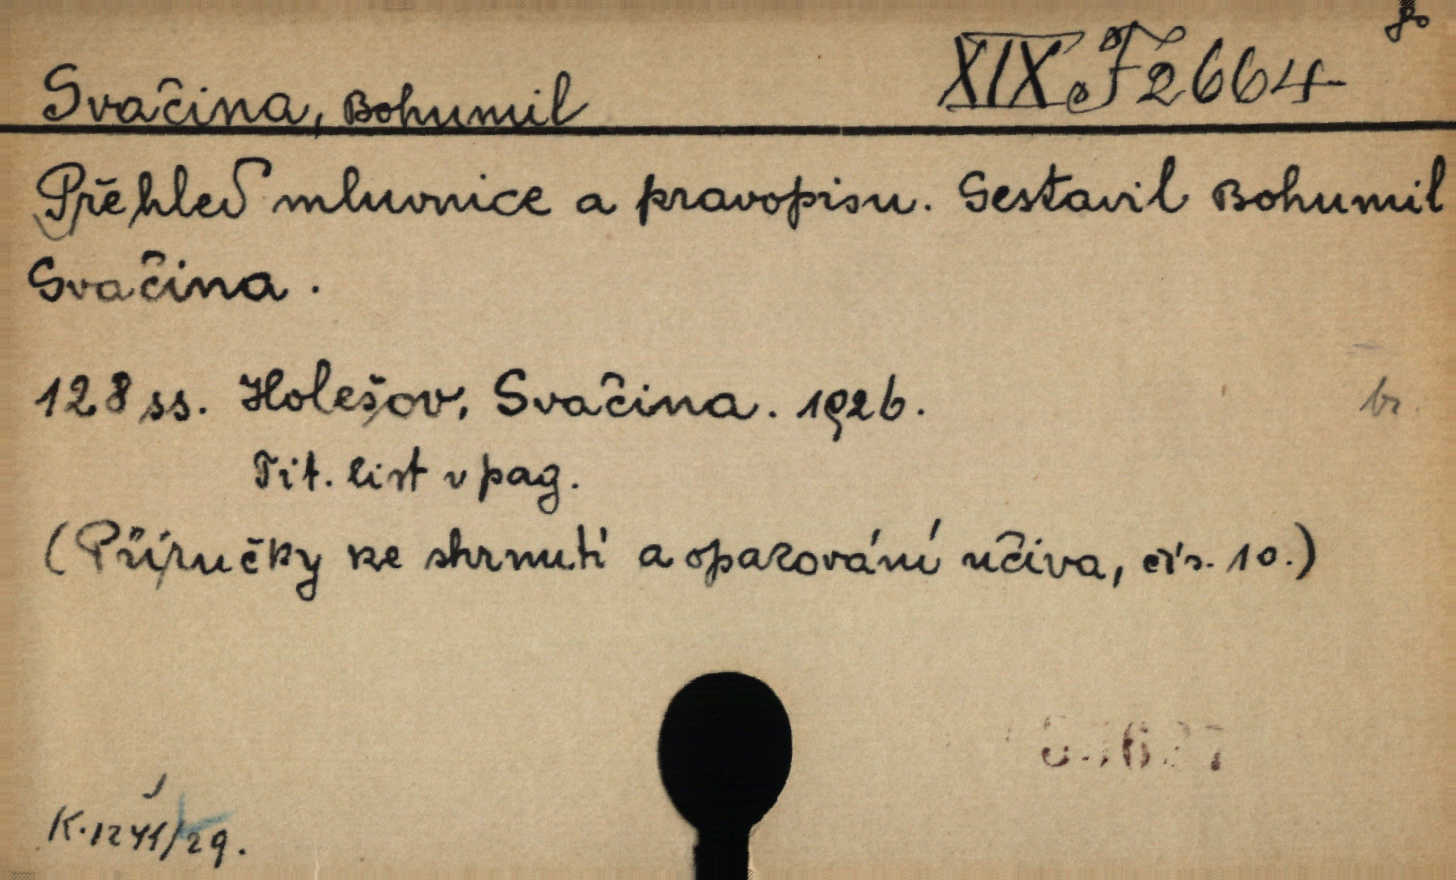 Svačina, Bohumil
XIX F 2664
Přehled mluvnice a pravopisu. Sestavil Bohumil
Svačina.
128 ss. Holešov, Svačina. 1926.
br.
Tit. list v pag.
(Příručky ke shrnutí a opakování učiva, čís. 10.)
K. 1241/29.